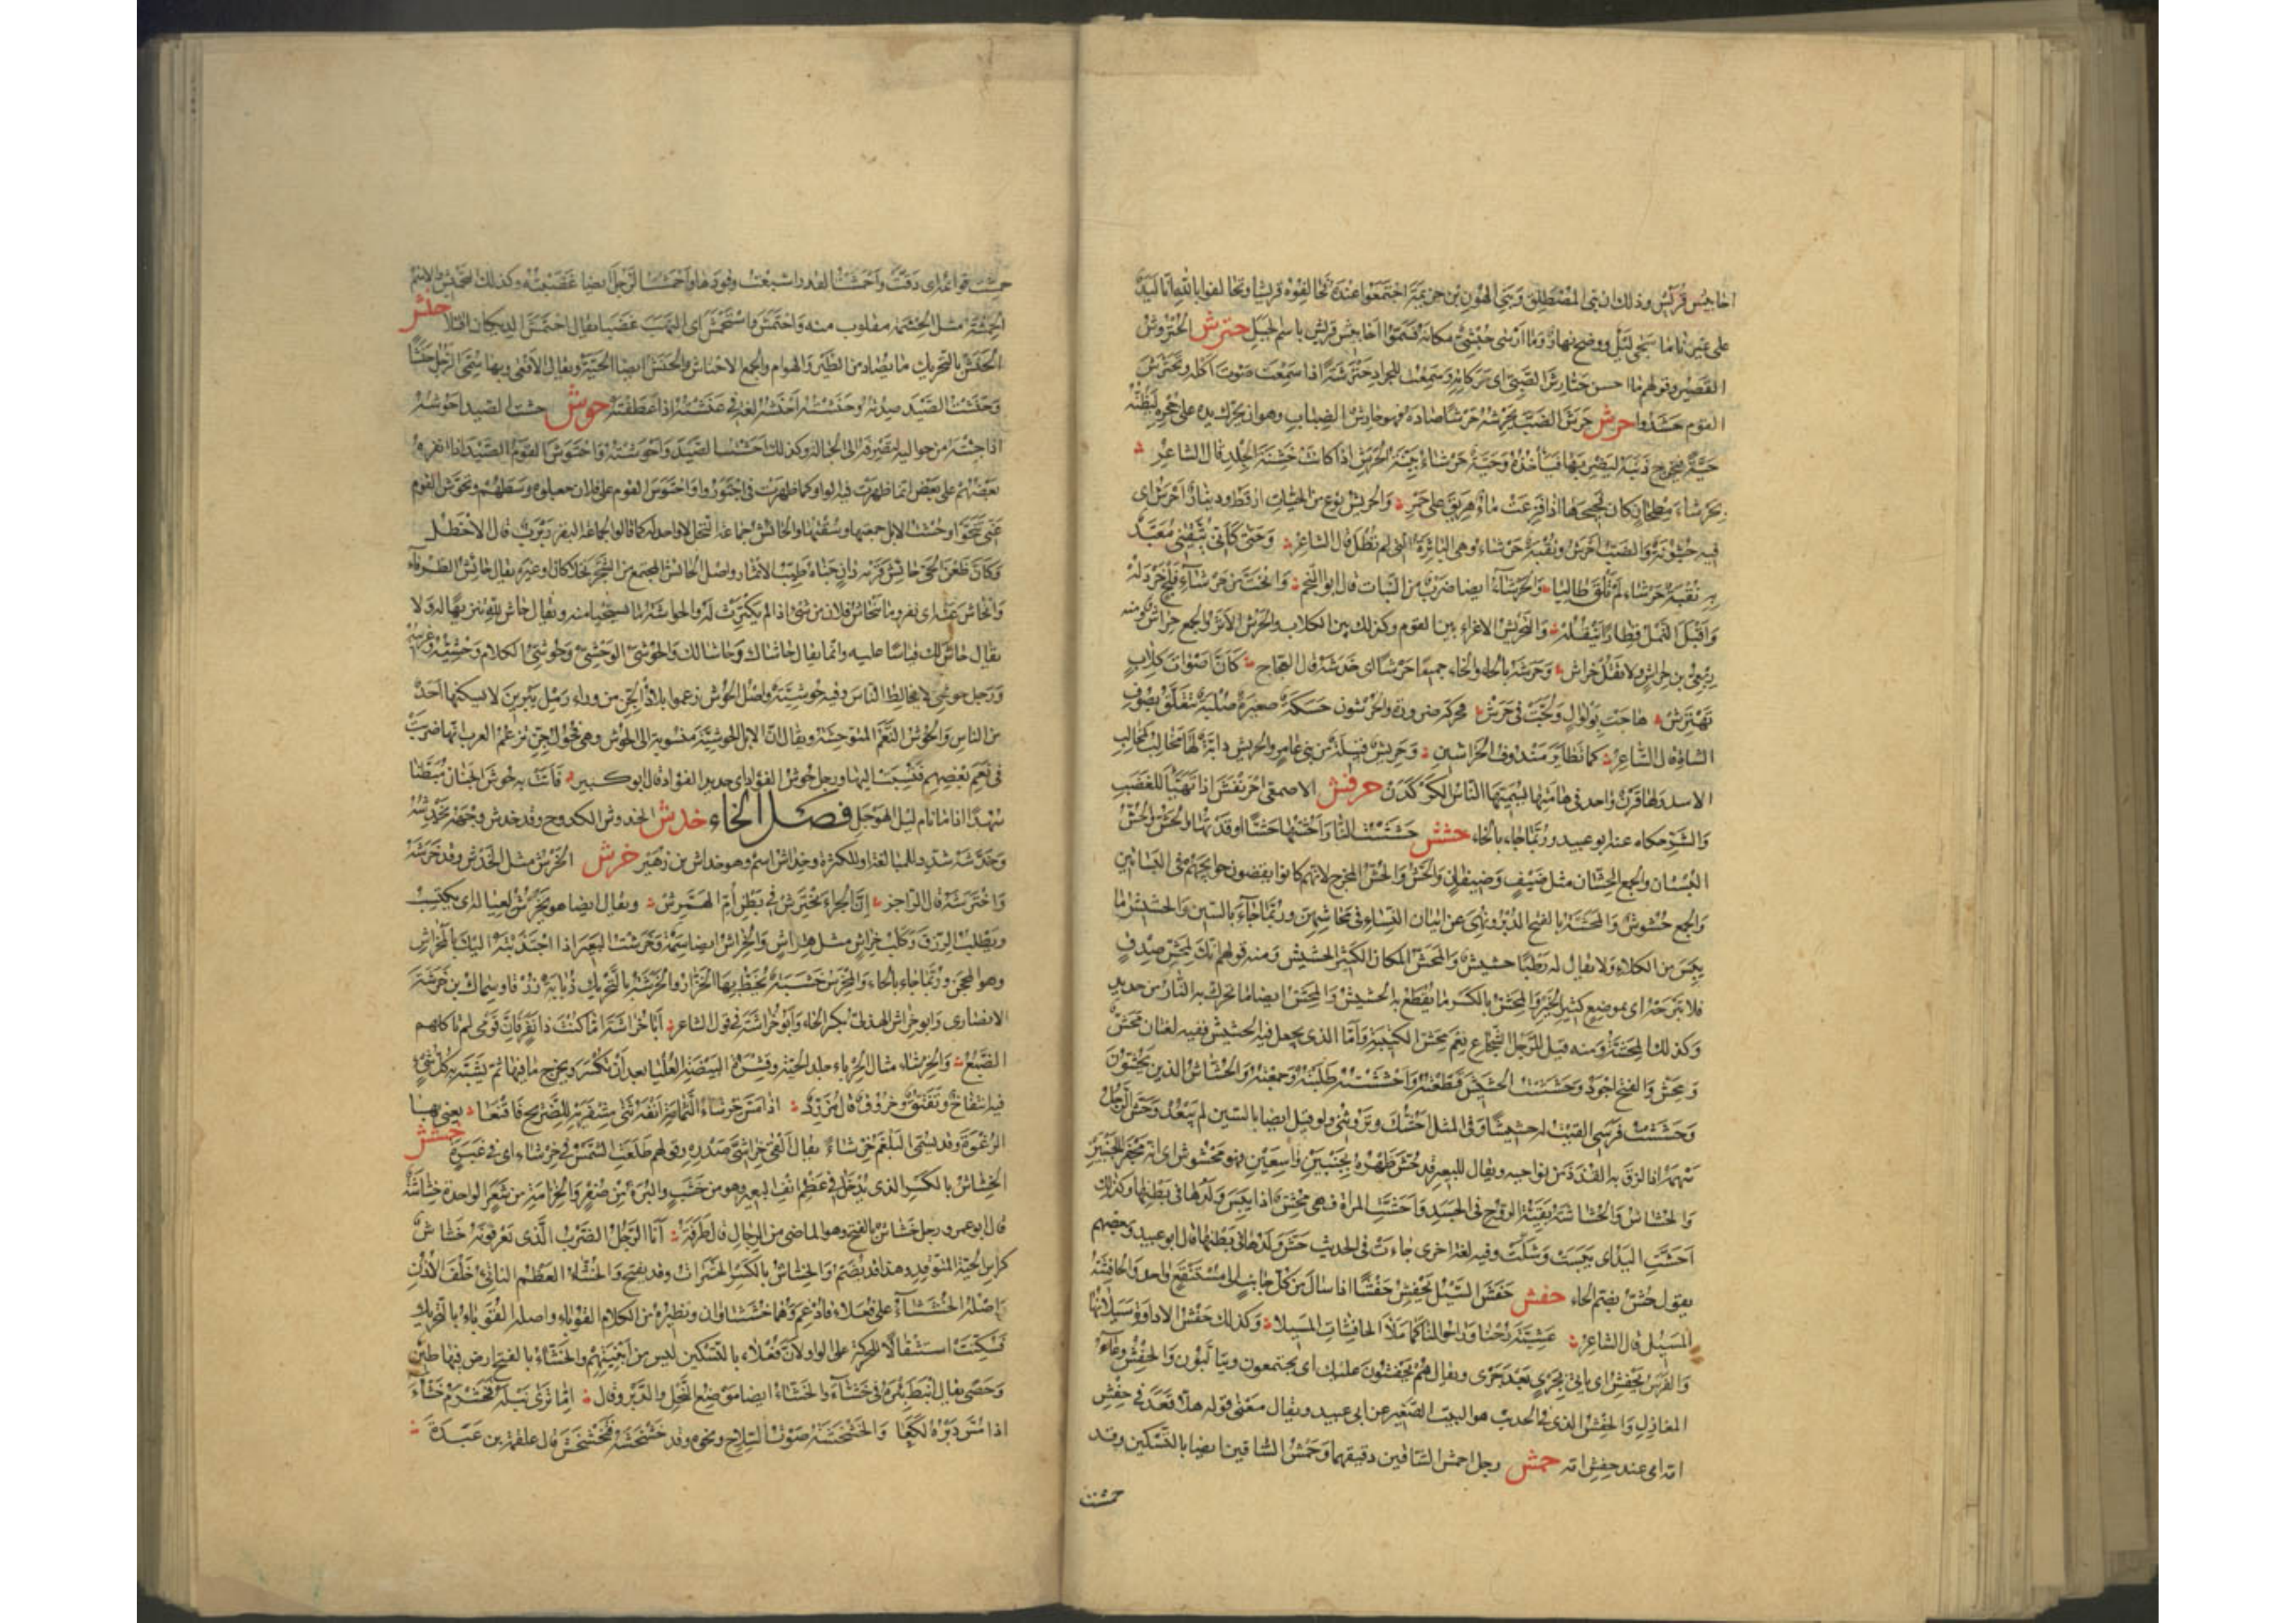 احابيش قريش وذلك ان بني المصطلق وبني الهون بن خزيمة اجتمعوا عنده فحالفوا قريشا وتحالفوا بالله انا ليد
على غيرنا ما سجى ليل ووضح نهار وما ارسى حبشى مكانه فسموا احابيش قريش باسم الجبل حترش الحتروش
القصير وقولهم ما احسن حتارش الصبي اى حركاته وسمعت للجراد حترشة اذا سمعت صوت اكله وتحترش
القوم حشدوا حرش حرش الضب يحرشه حرشا صاده فهو حارش الضباب وهو ان يحرك يده على جحره ليظنه
حية فيخرج ذنبه ليضربها فيأخذه وحية حرشاء بينة الحرش اذا كانت خشنة الجلد قال الشاعر
بحرشاء مطحان كان فحيحها اذا فزعت ماء هريق على جمر والحريش نوع من الحيات ارقط ودينار احرش اى
فيه خشونة والضب احرش ونقبة حرشاء وهى الباثرة التى لم تطل قال الشاعر وحتى كأنى يتقى بى معبد
به نقبة حرشاء لم تلق طاليا والحرشاء ايضا ضرب من النبات قال ابو النجم وانحت من حرشاء فلج خردله
واقبل النمل قطارا تنقله والتحريش الاغراء بين القوم وكذلك بين الكلاب والحرش الاثر والجمع حراش ومنه
ربعى بن حراش ولا تقل خراش وحرشه بالحاء والخاء جميعا حرشا اى خدشه قال العجاج كان اصوات كلاب
تهترش هاجت بولوال ولجت في حرش فحركه ضرورة والحرشون حسكة صغيرة صلبة تتعلق بصوف
الشاة قال الشاعر كما تطاير مندوف الحراشين وحريش قبيلة من بنى عامر والحريش دابة لها مخالب كمخالب
الاسد ولها قرن واحد فى هامتها يسميها الناس الكركدن حرفش الاصمعى احرنفش اذا تهيأ للغضب
والشر حكاه عنه ابو عبيد وربما جاء بالخاء حشش حششت النار احشها حشا اوقدتها والحش والحش
البستان والجمع الحشان مثل ضيف وضيفان والحش والحش المخرج لانهم كانوا يقضون حوائجهم فى البساتين
والجمع حشوش والمحشة بالفتح الدبر ونهى عن اتيان النساء فى محاشهن وربما جاء بالسين والحشيش ما
يبس من الكلاء ولا يقال له رطبا حشيش والمحش المكان الكثير الحشيش ومنه قولهم انك لمحش صدق
فلا تبرحه اى بموضع كثير الخير والمحش بالكسر ما يقطع به الحشيش والمحش ايضا ما تحرك به النار من حديد
وكذلك المحشة ومنه قيل للرجل الشجاع نعم محش الكتيبة واما الذى يجعل فيه الحشيش ففيه لغتان محش
ومحش والفتح اجود وحششت الحشيش قطعته واحششته طلبته وجمعته والحشاش الذين يحتشون
وحششت فرسى القيت له حشيشا وفى المثل احشك وتروثنى ولو قيل ايضا بالسين لم يبعد وحش الرجل
سهمه اذا الزق به القذذ من نواحيه ويقال للبعير قد حش ظهره بجنبين واسعين فهو محشوش اى انه مجفر الجنبين
والحشاش والحشاشة بقية الروح فى الجسد واحشت المراة فهى محش اذا يبس ولدها فى بطنها وكذلك
احشت اليد اى يبست وشلت وفيه لغة اخرى جاءت فى الحديث حش ولدها فى بطنها قال ابو عبيد وبعضهم
يقول حش بضم الحاء حفش حفش السيل يحفش حفشا اذا سال من كل جانب الى مستنقع واحد والحافشة
المسيل قال الشاعر عشية رحنا وراحوا لنا كما ملأ الحافشات المسيلا وكذلك حفش الاداوة سيلانها
والفرس يحفش اى يأتى بجرى بعد جرى ويقال هم يحفشون عليك اى يجتمعون ويتألبون والحفش وعاء
المغازل والحفش الذى فى الحديث هو البيت الصغير عن ابى عبيد ويقال معنى قوله هلا قعد فى حفش
امه اى عند حفش امه حمش رجل احمش الساقين دقيقهما وحمش الساقين ايضا بالتسكين وقد
حمشت
حمشت قوائمه اى دقت واحمشت القدر اشبعت وقودها واحمشت الرجل ايضا اغضبته وكذلك التحميش والاسم
الحمشة مثل الحشمة مقلوب منه واحتمش واستحمش اى التهب غضبا يقال احتمش الديكان اقتتلا حنش
الحنش بالتحريك ما يصاد من الطير والهوام والجمع الاحناش والحنش ايضا الحية ويقال الافعى وبها سمى الرجل حنشا
وحنشت الصيد صدته وحنشته احنشه لغة فى عنشته اذا عطفته حوش حشت الصيد احوشه
اذا جئته من حواليه لتصرفه الى الحبالة وكذلك احشت الصيد واحوشته واحتوش القوم الصيد اذا انفره
بعضهم على بعض وانما ظهرت فيه الواو كما ظهرت فى اجتوروا واحتوش القوم على فلان جعلوه وسطهم وتحوش القوم
عنى تنحوا وحشت الابل جمعتها وسقتها والحائش جماعة النخل لا واحد له كما قالوا لجماعة البقر ربرب قال الاخطل
وكان ظعن الحى حائش قرية دان جناه طيب الاثمار واصل الحائش المجتمع من الشجر نخلا كان او غيره يقال حائش الطرفاء
وانحاش عنه اى نفر وما ينحاش فلان من شئ اذا لم يكترث له والحواشة ما يستحيا منه ويقال حاش لله تنزيها له ولا
يقال حاش لك قياسا عليه وانما يقال حاشاك وحاشا لك والحوشى الوحشى وحوشى الكلام وحشيه وغريبه
ورجل حوشى لا يخالط الناس وفيه حوشية واصل الحوش زعموا بلاد الجن من وراء رمل يبرين لا يسكنها احد
من الناس والحوش النعم المتوحشة ويقال ان الابل الحوشية منسوبة الى الحوش وهى فحول الجن تزعم العرب انها ضربت
فى نعم بعضهم فنسبت اليها ورجل حوش الفؤاد اى حديد الفؤاد قال ابو كبير فاتت به حوش الجنان مبطنا
سهدا اذا ما نام ليل الهوجل فصل الخاء خدش الخدوش الكدوح وقد خدش وجهه يخدشه
وخدشه شدد للمبالغة او للكثرة وخداش اسم وهو خداش بن زهير خرش الخرش مثل الخدش وقد خرشه
واخترشه قال الراجز ان الجراء تخترش فى بطن ام الهمرش ويقال ايضا هو يخرش لعياله اى يكتسب
ويطلب الرزق وكلب خراش مثل هراش والخراش ايضا سمة وخرشت البعير اذا اجتذبته اليك بالمخراش
وهو المحجن وربما جاء بالحاء والمخرش خشبة يخط بها الخراز والخرشة بالتحريك ذبابة وسماك بن خرشة
الانصارى وابو خراش الهذلى بكسر الخاء وابو خراشة فى قول الشاعر ابا خراشة اما كنت ذا نفر فان قومى لم تاكلهم
الضبع والخرشاء مثال الحرباء جلد الحية وقشرة البيضة العليا بعد ان تكسر ويخرج ما فيها ثم يشبه به كل شئ
فيه انتفاخ وتفتق وخروق قال مزرد اذا مس خرشاء الثمالة انفه ثنى مشفريه للصريح فاقنعا يعنى بها
الرغوة وقد يسمى البلغم خرشاء يقال القى خراشى صدره وقولهم طلعت الشمس فى خرشاء اى فى غبرة خشش
الخشاش بالكسر الذى يدخل فى عظم انف البعير وهو من خشب والبرة من صفر والخزامة من شعر الواحدة خشاشة
قال ابو عمرو رجل خشاش بالفتح وهو الماضى من الرجال قال طرفة انا الرجل الضرب الذى تعرفونه خشاش
كراس الحية المتوقد وهذا قد يضم والخشاش بالكسر الحشرات وقد يفتح والخشاء العظم الناتئ خلف الاذن
واصله الخششاء على فعلاء فادغم وهما خششاوان ونظيره من الكلام القوباء واصله القوباء بالتحريك
فسكنت استثقالا للحركة على الواو لان فعلاء بالتسكين ليس من ابنيتهم والخشاء بالفتح ارض فيها طين
وحصى يقال انبط بئره فى خشاء والخشاء ايضا موضع النحل والدبر وقال اما ترى نبله فخشرم خشاء
اذا مس دبره لكعا والخشخشة صوت السلاح ونحوه وقد خشخشه فتخشخش قال علقمة بن عبدة